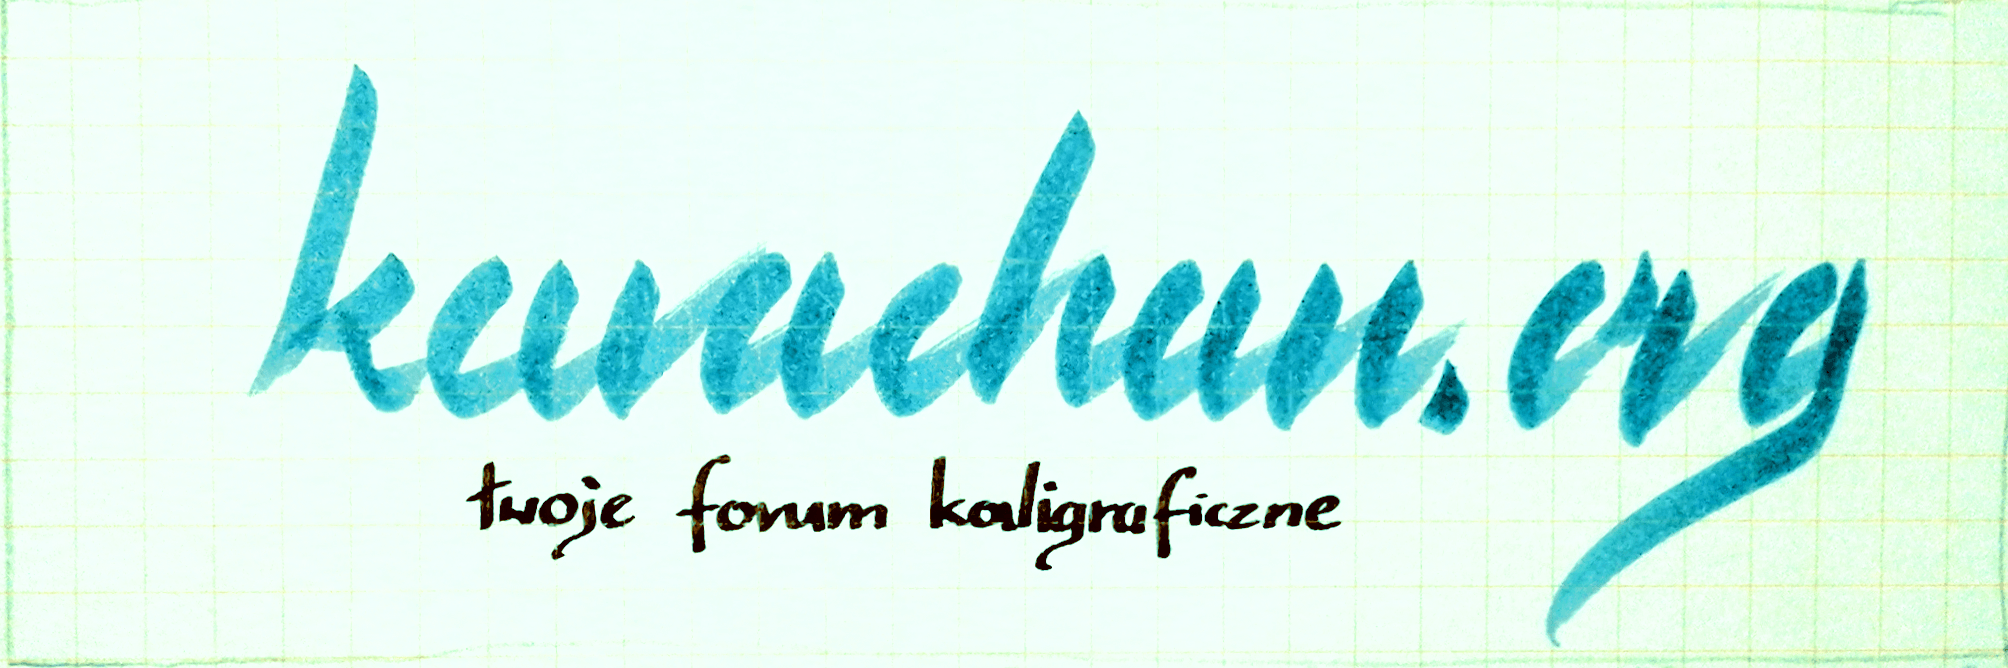 karachan.org
twoje forum kaligraficzne